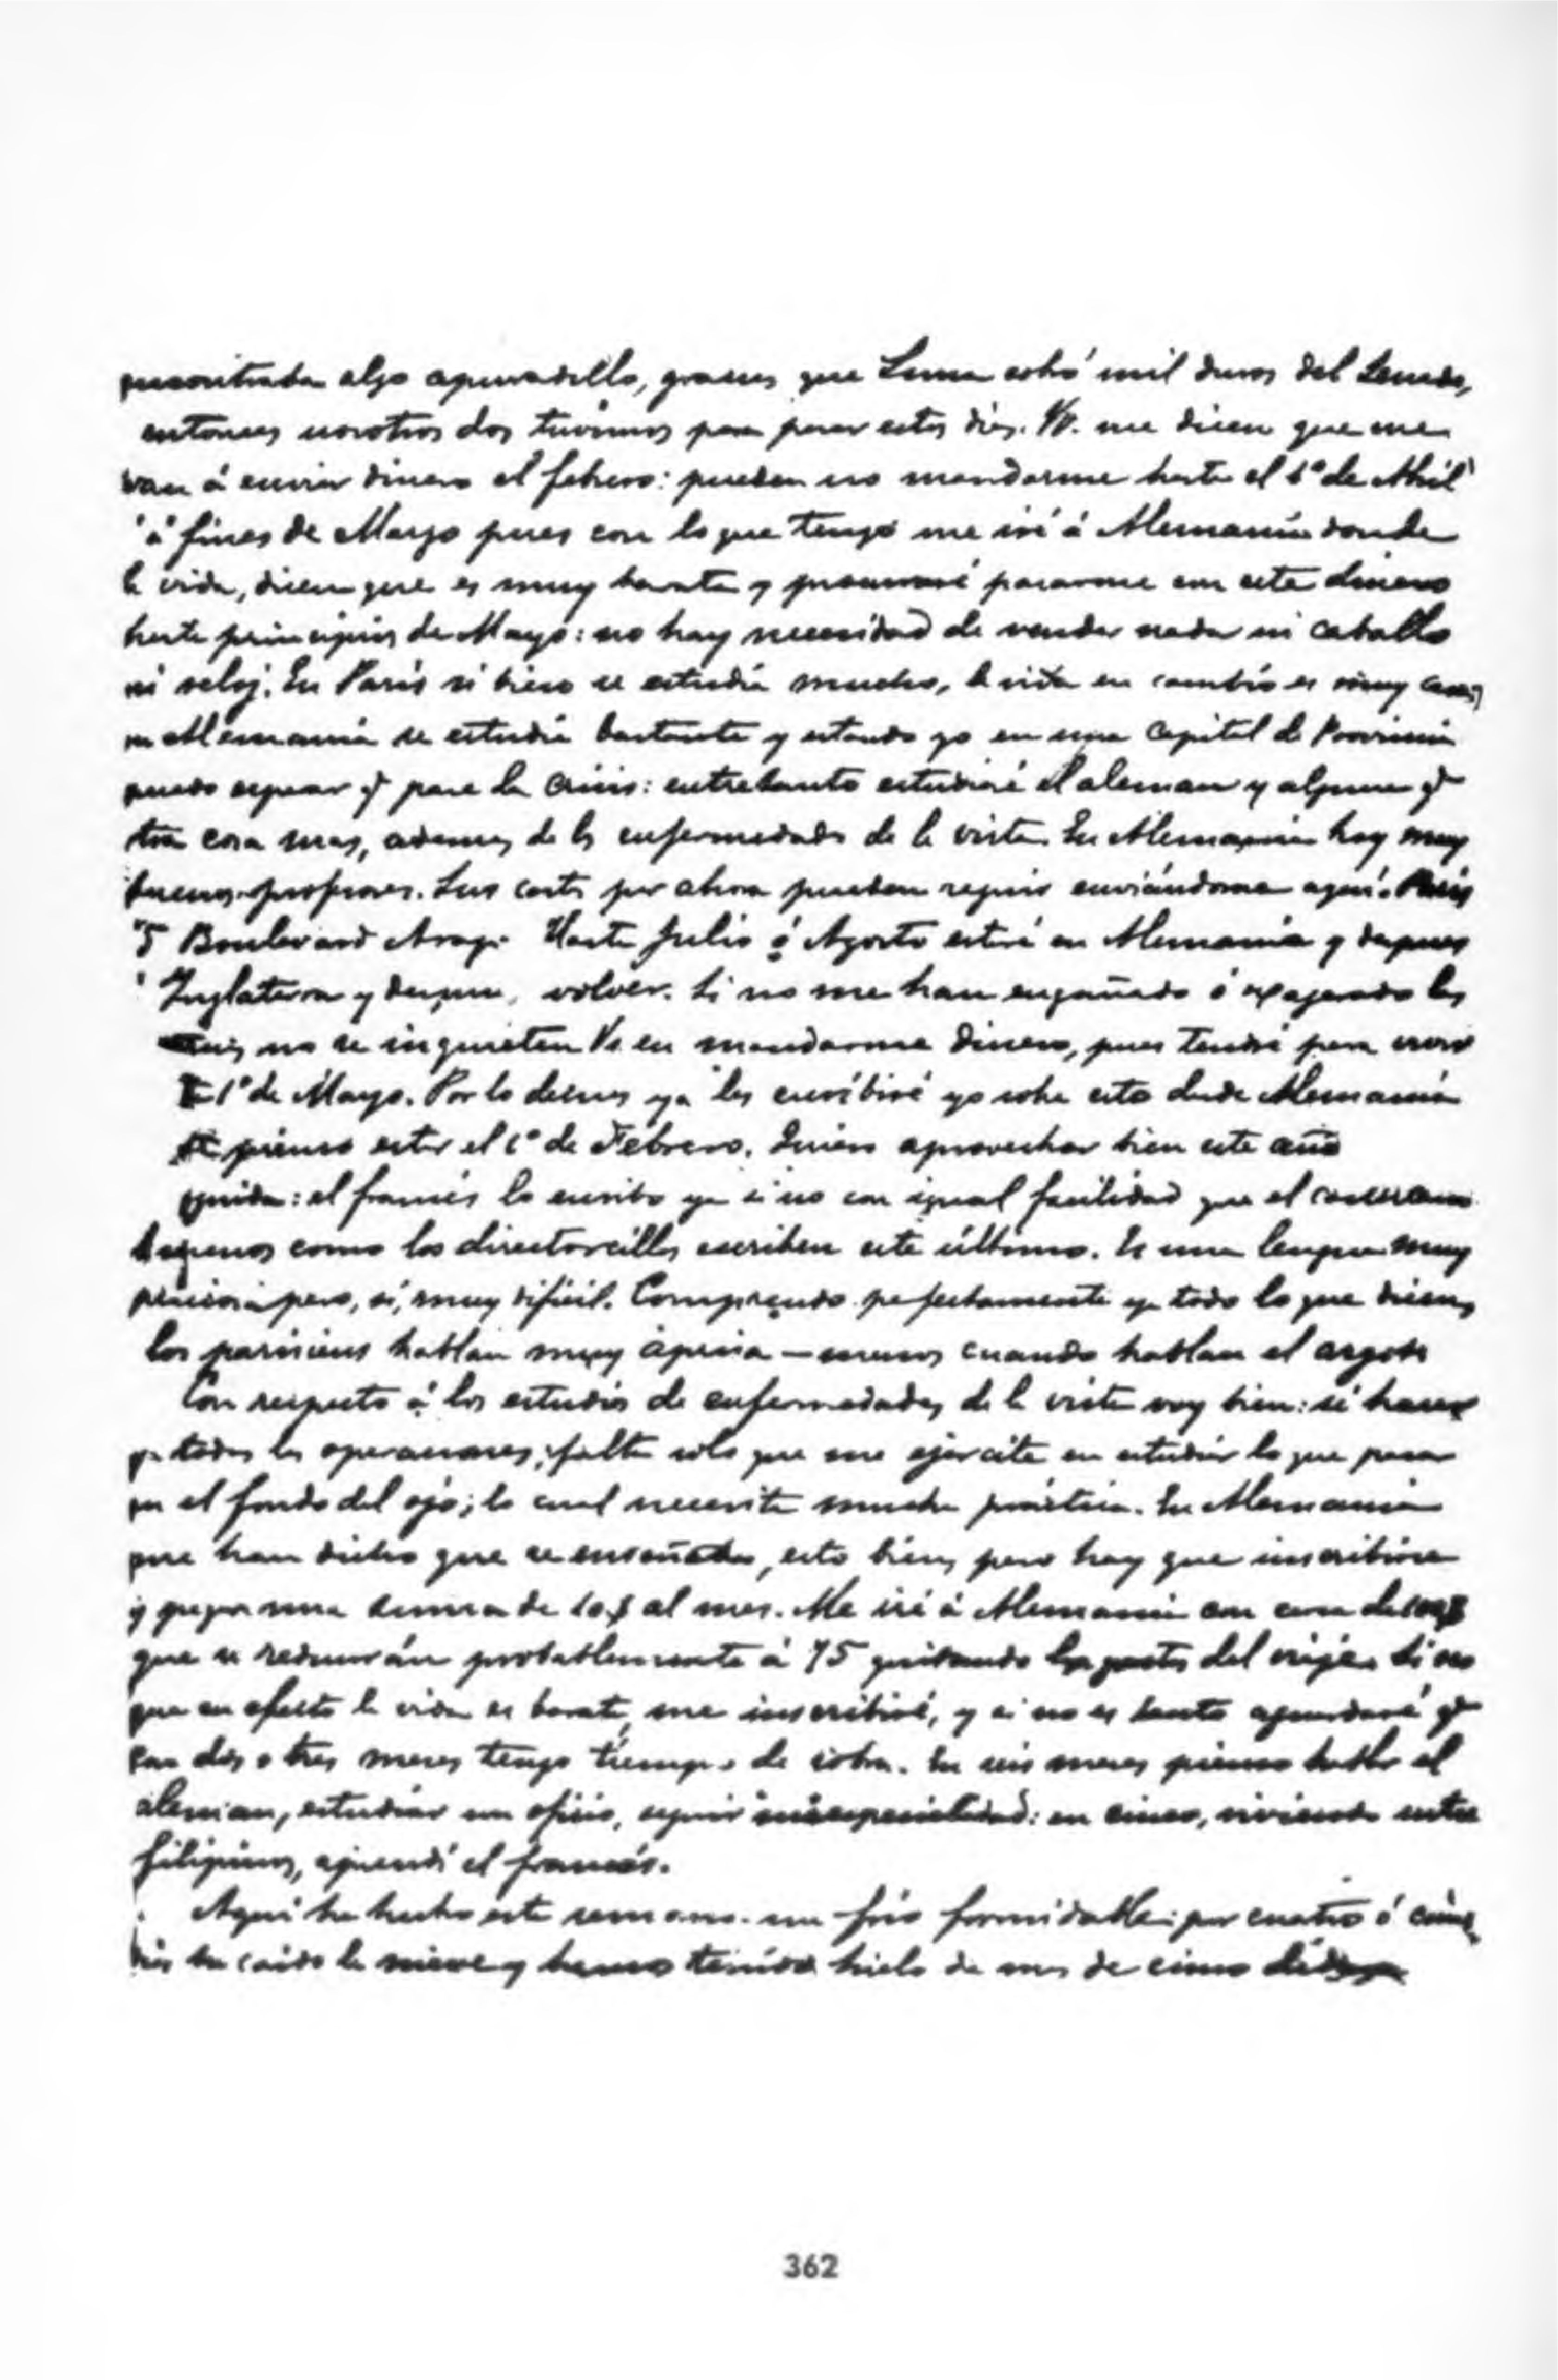 encontraba algo apuradillo, gracias que Luna cobró mil duros del Senado,
entonces nosotros dos tuvimos para pasar estos dias. Vs. me dicen que me
van á enviar dinero el febrero: pueden no mandarme hasta el 1º de Abril
ó á fines de Marzo pues con lo que tengo me iré á Alemania donde
la vida, dicen que es muy barata y procuraré pasarme con este dinero
hasta principios de Mayo: no hay necesidad de vender nada ni caballo
ni reloj. En Paris si bien se estudia mucho, la vida en cambio es muy cara,
en Alemania se estudia bastante y estando yo en una Capital de Provincia
puedo esperar q pase la crisis: entretanto estudiaré el aleman y alguna q
otra cosa mas, ademas de las enfermedades de la vista. En Alemania hay muy
buenos profesores. Sus cartas por ahora pueden seguir enviándome aquí á Paris
5 Boulevard Arago. Hasta Julio ó Agosto estaré en Alemania y despues
Inglaterra y despues, volver. Si no me han engañado ó exagerado las
no se inquieten Vs. en mandarme dinero, pues tendré para vivir
1º de Mayo. Por lo demas ya les escribiré yo sobre esto desde Alemania
pienso estar el 1º de Febrero. Quiero aprovechar bien este año
el francés lo escribo ya si no con igual facilidad que el castellano
menos como los directorcillos escriben este último. Es una lengua muy
preciosa pero, sí, muy dificil. Comprendo perfectamente ya todo lo que dicen,
los parisiens hablan muy áprisa — menos cuando hablan el argot
Con respecto á los estudios de enfermedades de la vista voy bien: sé hacer
ya todas las operaciones; falta solo que me ejercite en estudiar lo que pasa
en el fondo del ojo; lo cual necesita mucha práctica. En Alemania
me han dicho que se enseñaba esto bien, pero hay que inscribirse
y pagar una suma de 10 $ al mes. Me iré á Alemania con cosa de 100 $
que se reducirán probablemente á 75 quitando los gastos del viaje. Si veo
que en efecto la vida es barata, me inscribiré, y si no es tanto aguardaré q
con dos o tres meses tengo tiempo de sobra. En seis meses pienso hablar el
aleman, estudiar un oficio, seguir mi especialidad: en cinco, viviendo entre
filipinos, aprendí el francés.
Aquí ha hecho esta semana un frio formidable: por cuatro ó cinco
dias ha caido la nieve y hemos tenido hielo de mas de cinco
362